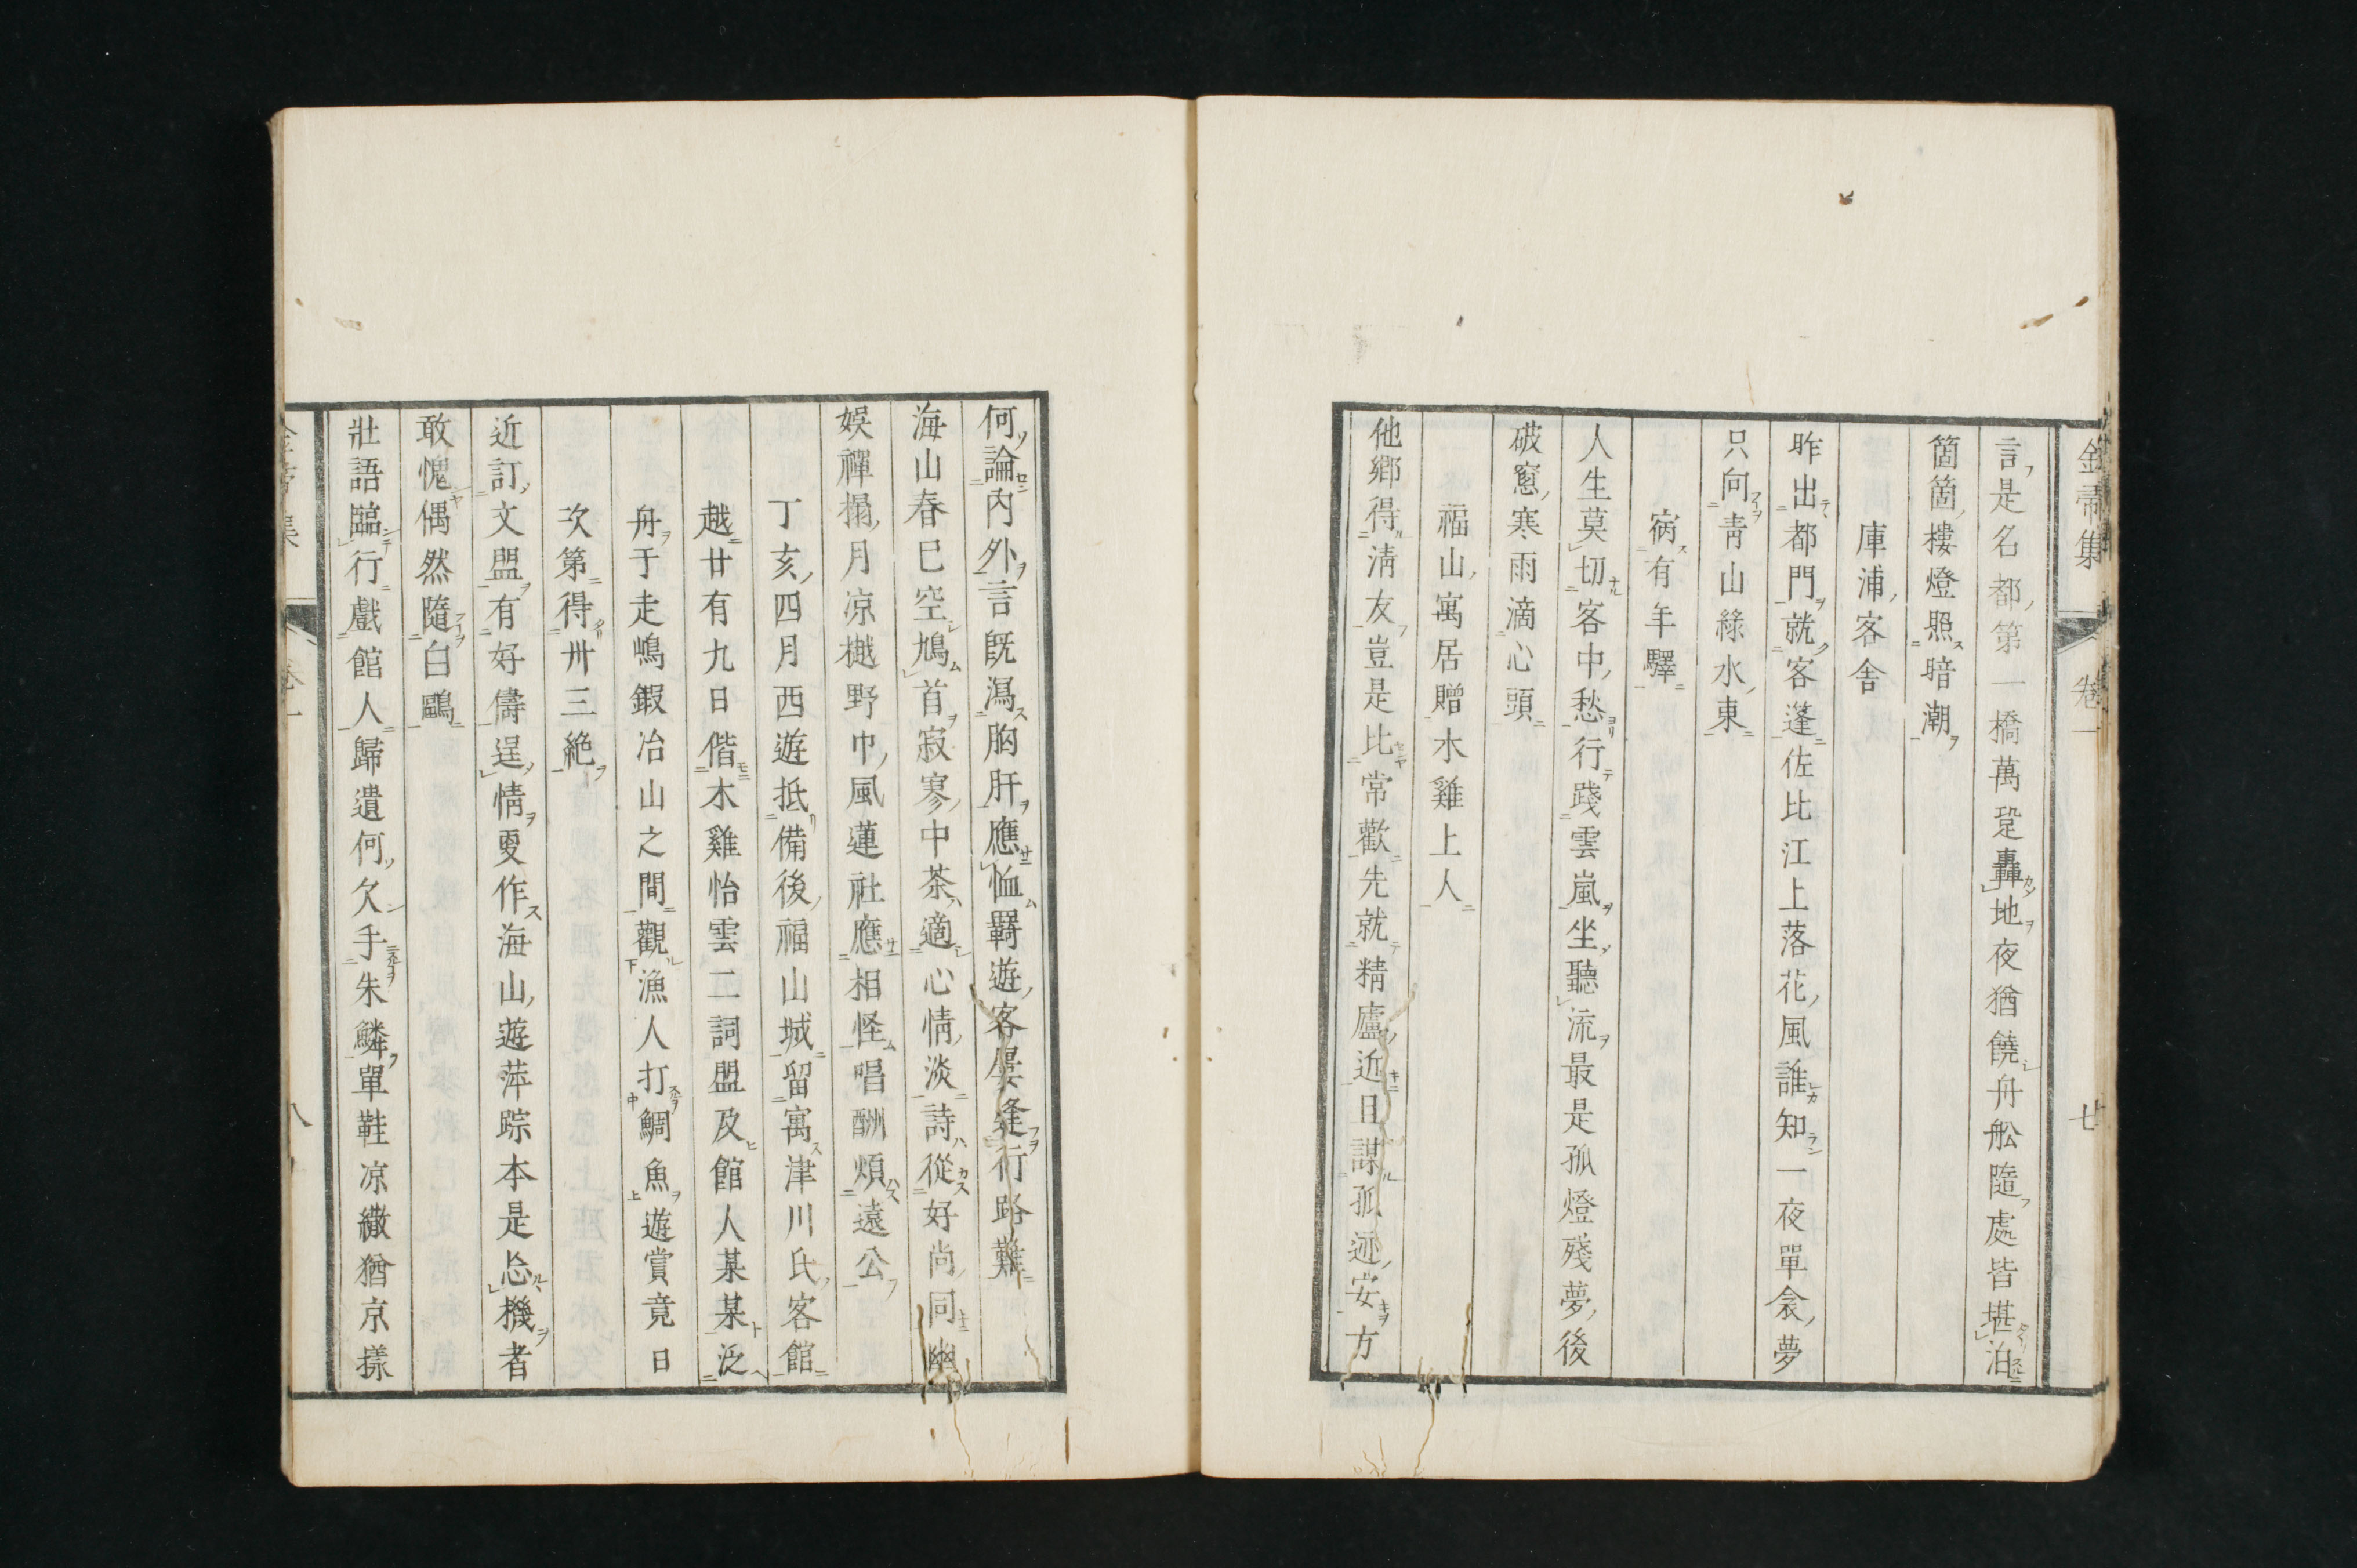 金帚集 卷一 七
言是名都第一橋萬跫轟地夜猶饒舟舩隨處皆堪泊
箇箇樓燈照暗潮
庫浦客舎
昨出都門就客蓬佐比江上落花風誰知一夜單衾夢
只向靑山綠水東
宿有年驛
人生莫切客中愁行踐雲嵐坐聽流最是孤燈殘夢後
破窓寒雨滴心頭
福山寓居贈木雞上人
他鄉得淸友豈是比常歡先就精廬近且謀孤迹安方
何論內外言旣瀉胸肝應恤羇遊客屢逢行路難
海山春已空鳩首寂寥中茶適心情淡詩從好尚同幽
娛禪榻月凉樾野巾風蓮社應相怪唱酬煩遠公
丁亥四月西遊抵備後福山城留寓津川氏客館
越廿有九日偕木雞怡雲二詞盟及館人某某泛
舟于走嶋鍜冶山之間觀漁人打鯛魚遊賞竟日
次第得卅三絶
近訂文盟有好儔逞情更作海山遊萍踪本是忘機者
敢愧偶然隨白鷗
壯語臨行戲館人歸遺何欠手朱鱗單鞋凉繖猶京樣